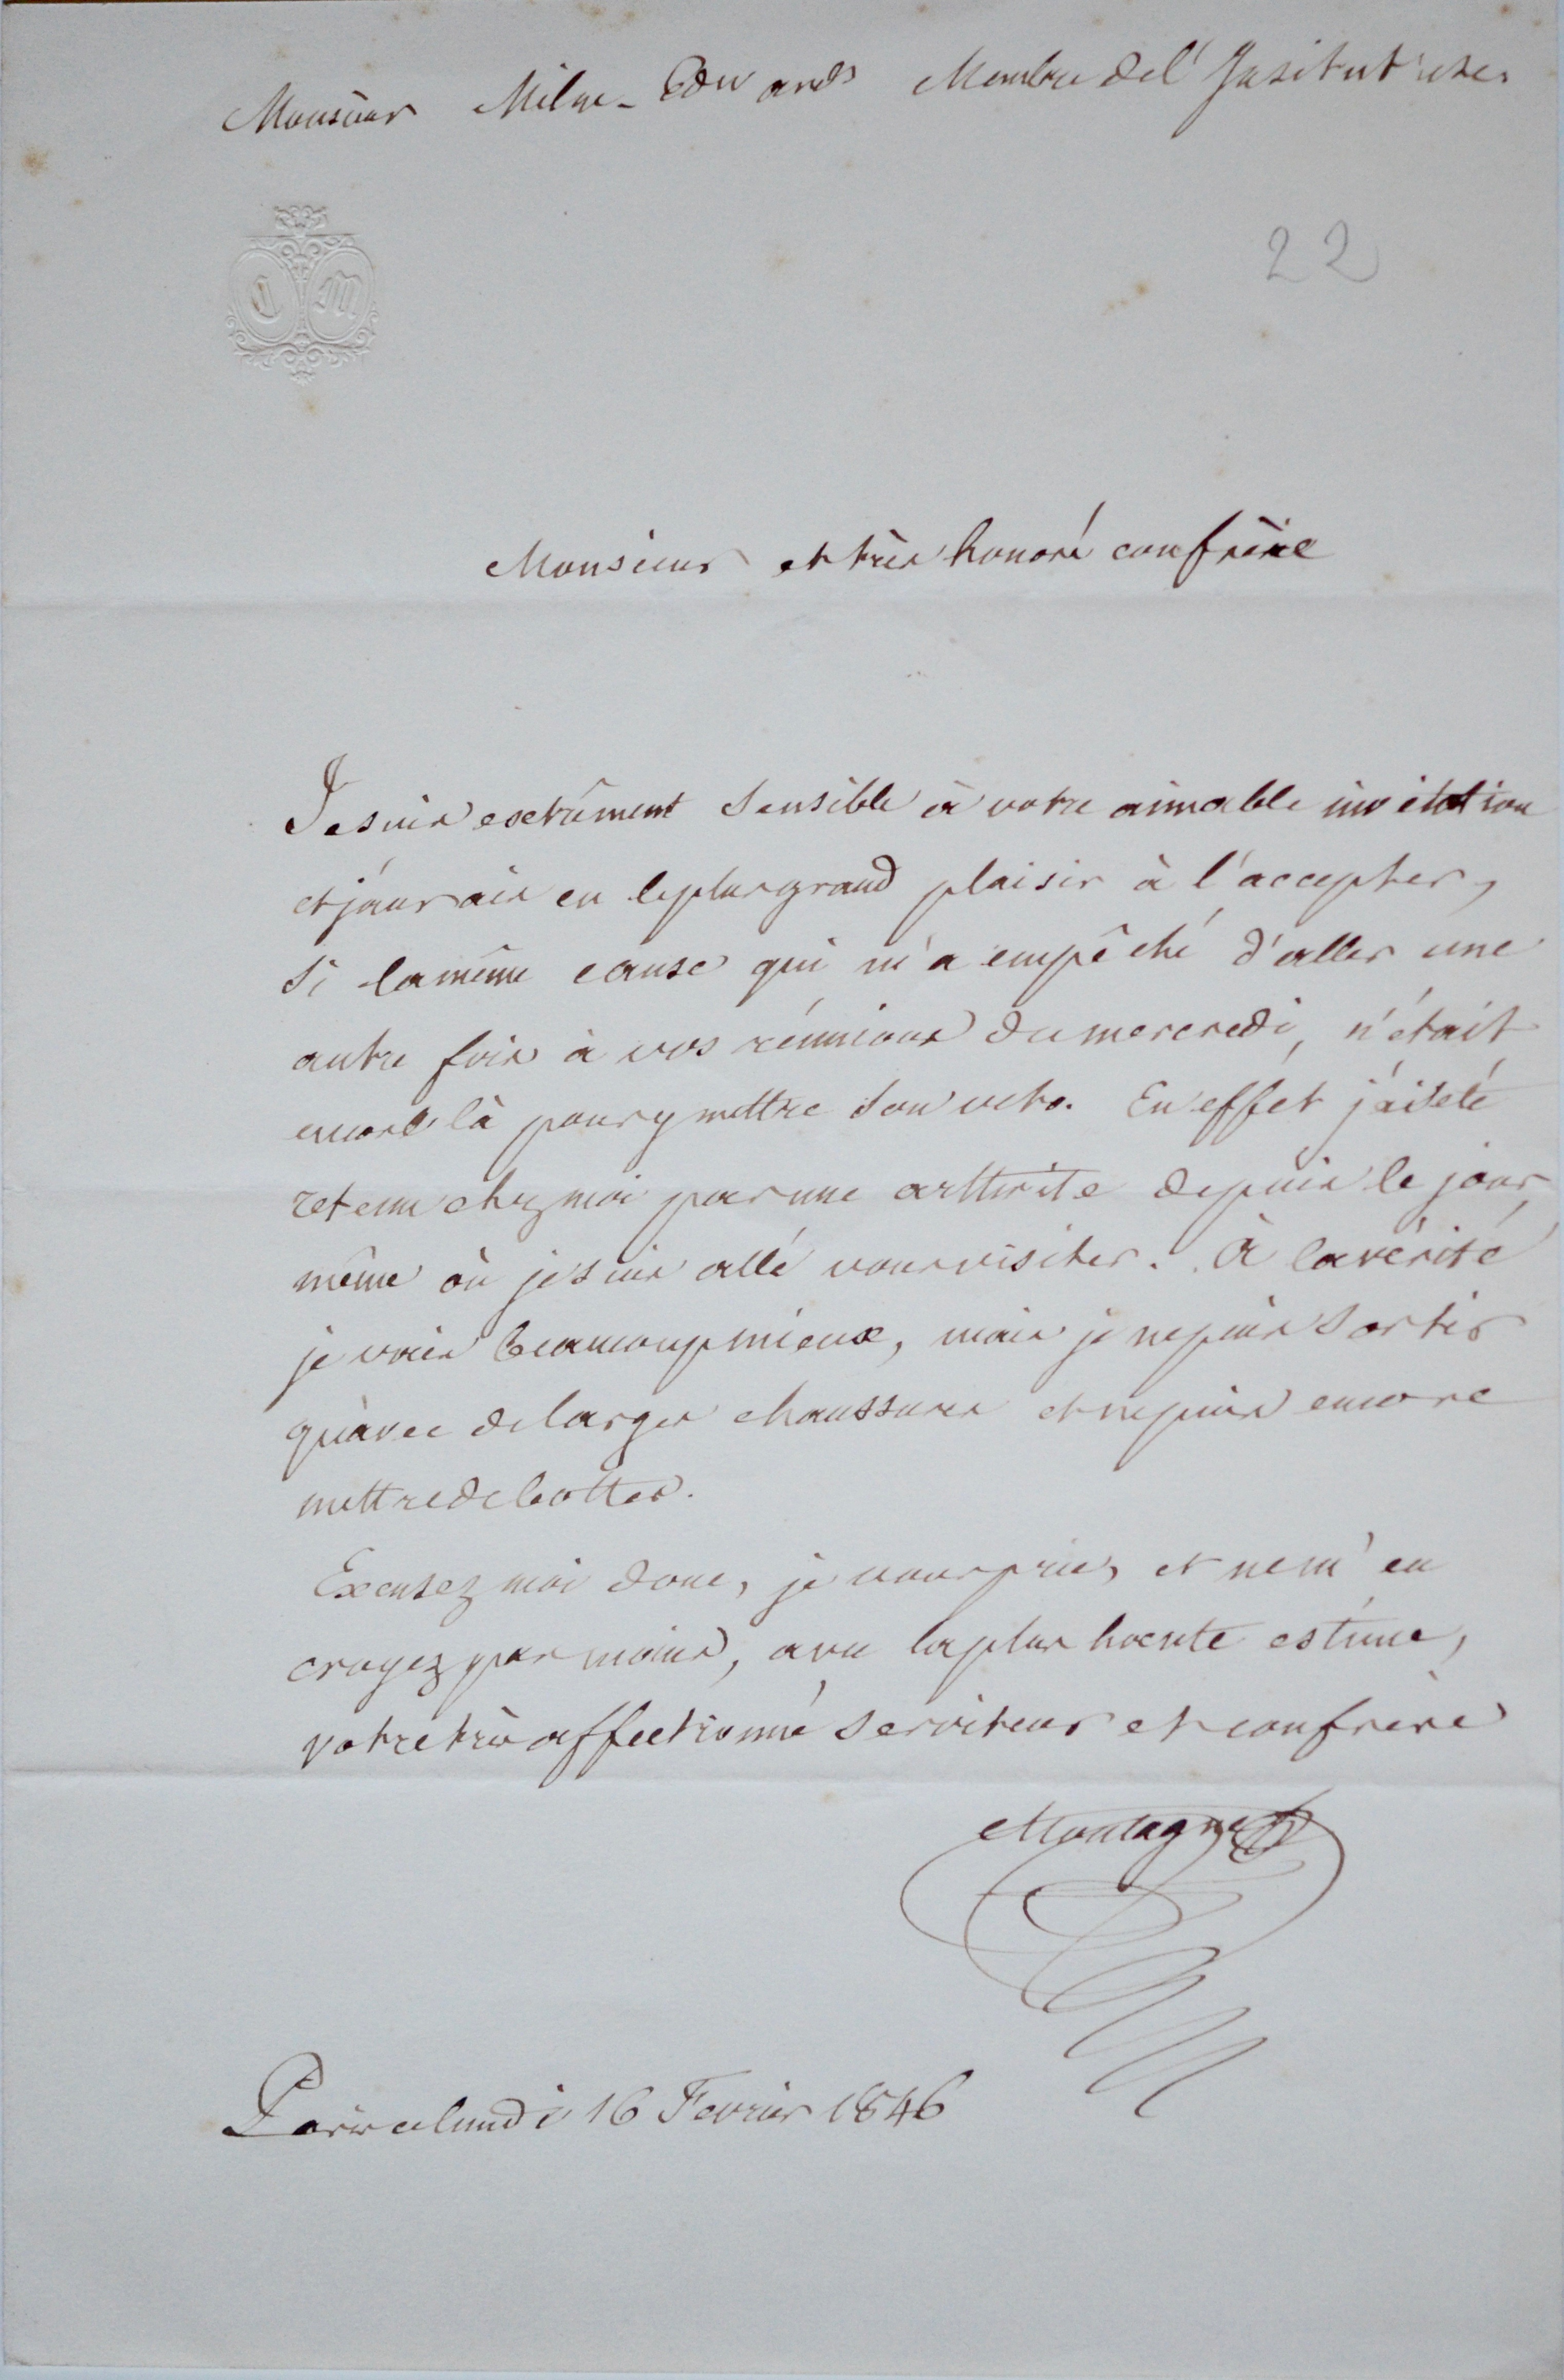 Monsieur Milne-Edwards Membre de l'Institut etc.
C M
22
Monsieur et très honoré confrère
Je suis extrêment sensible à votre aimable invitation
et j'aurais eu le plus grand plaisir à l'accepter,
si la même cause qui m'a empêché d'aller une
autre fois à vos réunions du mercredi, n'était
encore là pour y mettre son veto. En effet j'ai été
retenu chez moi par une arthrite depuis le jour
même où je suis allé vous visiter. À la vérité
je vais beaucoup mieux, mais je ne puis sortir
qu'avec de larges chaussures et ne puis encore
mettre de bottes.
Excusez moi donc, je vous prie, et ne m'en
croyez pas moins, avec la plus haute estime,
votre très affectionné serviteur et confrère
Montagne
Paris ce lundi 16 Fevrier 1846